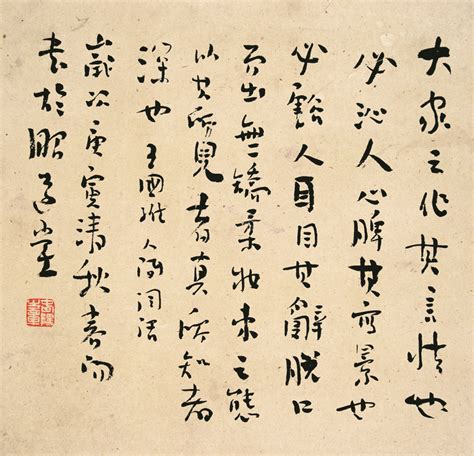 大家之作其言情也
必沁人心脾其寫景也
必豁人耳目其辭脫口
而出無矯柔妝束之態
以其所見者真所知者
深也王國維人間詞話
歲次庚寅清秋書而
書於